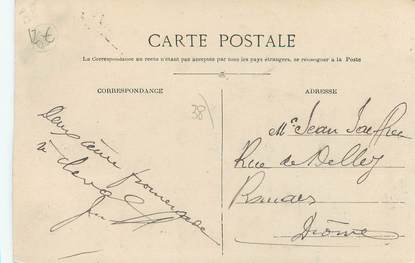 12€
CARTE POSTALE
La Correspondance au recto n'étant pas acceptée par tous les pays étrangers, se renseigner à la Poste
CORRESPONDANCE
38
Deuxième promenade
à cheval
ADRESSE
Mr Jean
Rue de Delley
Romans
Drôme